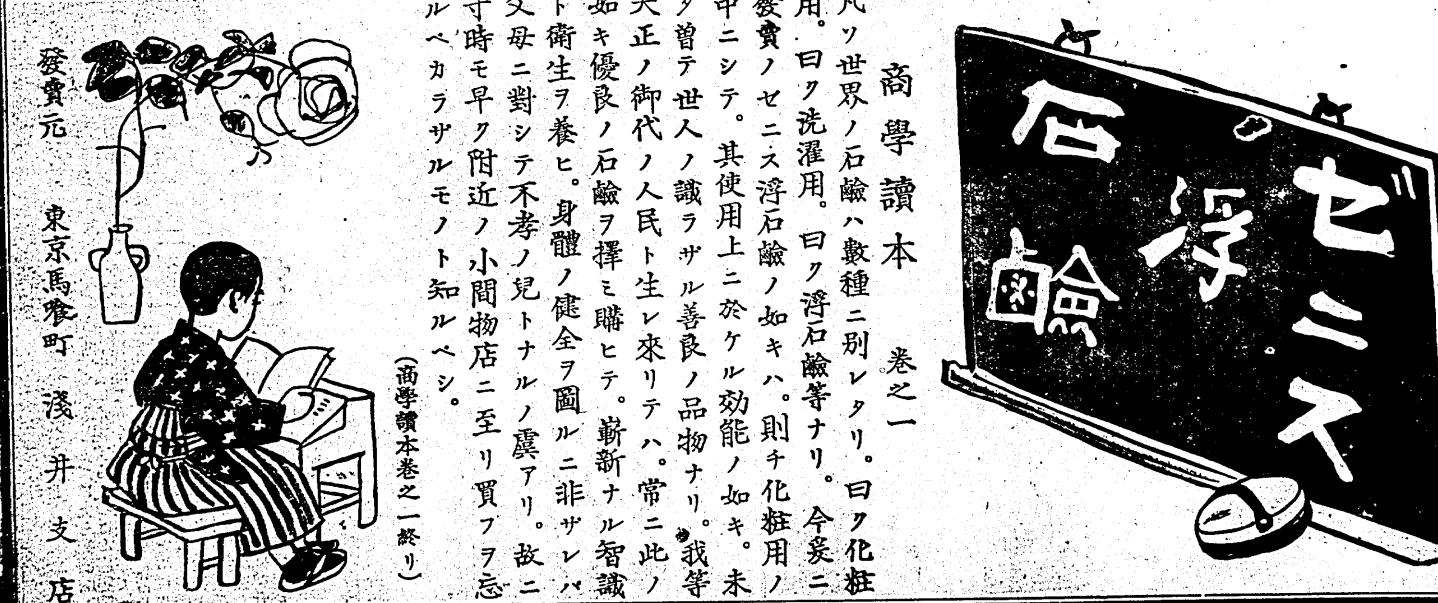 ゼニス
浮
石鹼
商學讀本 巻之一
凡ソ世界ノ石鹼ハ數種ニ別レタリ。曰ク化粧
用。曰ク洗濯用。曰ク浮石鹼等ナリ。今爰ニ
發賣ノゼニス浮石鹼ノ如キハ。則チ化粧用ノ
中ニシテ。其使用上ニ於ケル効能ノ如キ。未
タ曽テ世人ノ識ラザル善良ノ品物ナリ。我等
大正ノ御代ノ人民ト生レ來リテハ。常ニ此ノ
如キ優良ノ石鹼ヲ擇ミ購ヒテ。嶄新ナル智識
ト衛生ヲ養ヒ。身體ノ健全ヲ圖ルニ非ザレバ
父母ニ對シテ不孝ノ兒トナルノ虞アリ。故ニ
寸時モ早ク附近ノ小間物店ニ至リ買フヲ忘
ルベカラザルモノト知ルベシ。
(商學讀本巻之一終リ)
發賣元 東京馬喰町 淺井支店